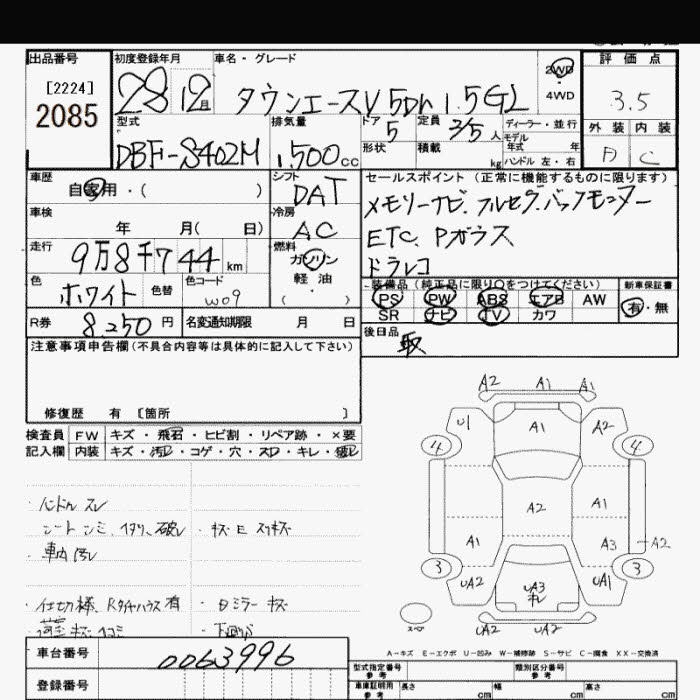 出品番号
[2224]
2085
初度登録年月
28 12月
車名・グレード
タウンエースV 5Dn 1.5GL
2WD
4WD
評価点
3.5
外装 内装
A C
型式
DBF-S402M
排気量
1,500cc
ドア 5
形状
定員 2/5人
積載 kg
ディーラー・並行
モデル年式 年
ハンドル 左・右
車歴
自家用・( )
シフト
DAT
車検
年 月( 日)
冷房
AC
走行
9万8千744km
燃料
ガソリン
軽油
( )
色
ホワイト
色替
色コード
W09
R券 8,250円
名変通知期限 月 日
セールスポイント(正常に機能するものに限ります)
メモリーナビ.フルセグ.バックモニター
ETC. Pガラス
ドラレコ
装備品(純正品に限り○をつけてください)
PS PW ABS エアB AW
SR ナビ TV カワ
新車保証書
有・無
後日品
取
注意事項申告欄(不具合内容等は具体的に記入して下さい)
修復歴 有 [箇所 ]
検査員記入欄
FW キズ・飛石・ヒビ割・リペア跡・×要
内装 キズ・汚レ・コゲ・穴・スレ・キレ・破レ
・ハンドル スレ
・車内 汚レ
・Dミラー キズ
A2 A1 A1
U1 A1 A2
4 4
A2 A1
A1 A3 A2
3 3
UA2 UA3 UA1
キレ
UA2 UA2
A-キズ E-エクボ U-凹み W-補修跡 S-サビ C-腐食 XX-交換済
車台番号
0063996
登録番号
型式指定番号 参考
類別区分番号 参考
車庫証明用 参考
長さ cm
幅 cm
高さ cm